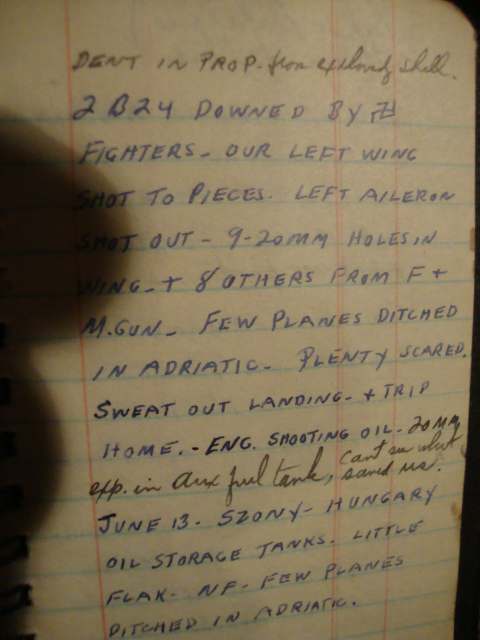 DENT IN PROP- from exploding shell.
2 B24 DOWNED BY 卐
FIGHTERS- OUR LEFT WING
SHOT TO PIECES. LEFT AILERON
SHOT OUT- 9-20MM HOLES IN
WING- + 8 OTHERS FROM F +
M.GUN- FEW PLANES DITCHED
IN ADRIATIC- PLENTY SCARED.
SWEAT OUT LANDING- + TRIP
HOME.- ENG. SHOOTING OIL- 20MM
exp. in Aux fuel tank, Cant see what
saved us.
JUNE 13- SZONY- HUNGARY
OIL STORAGE TANKS. LITTLE
FLAK- NF- FEW PLANES
DITCHED IN ADRIATIC.